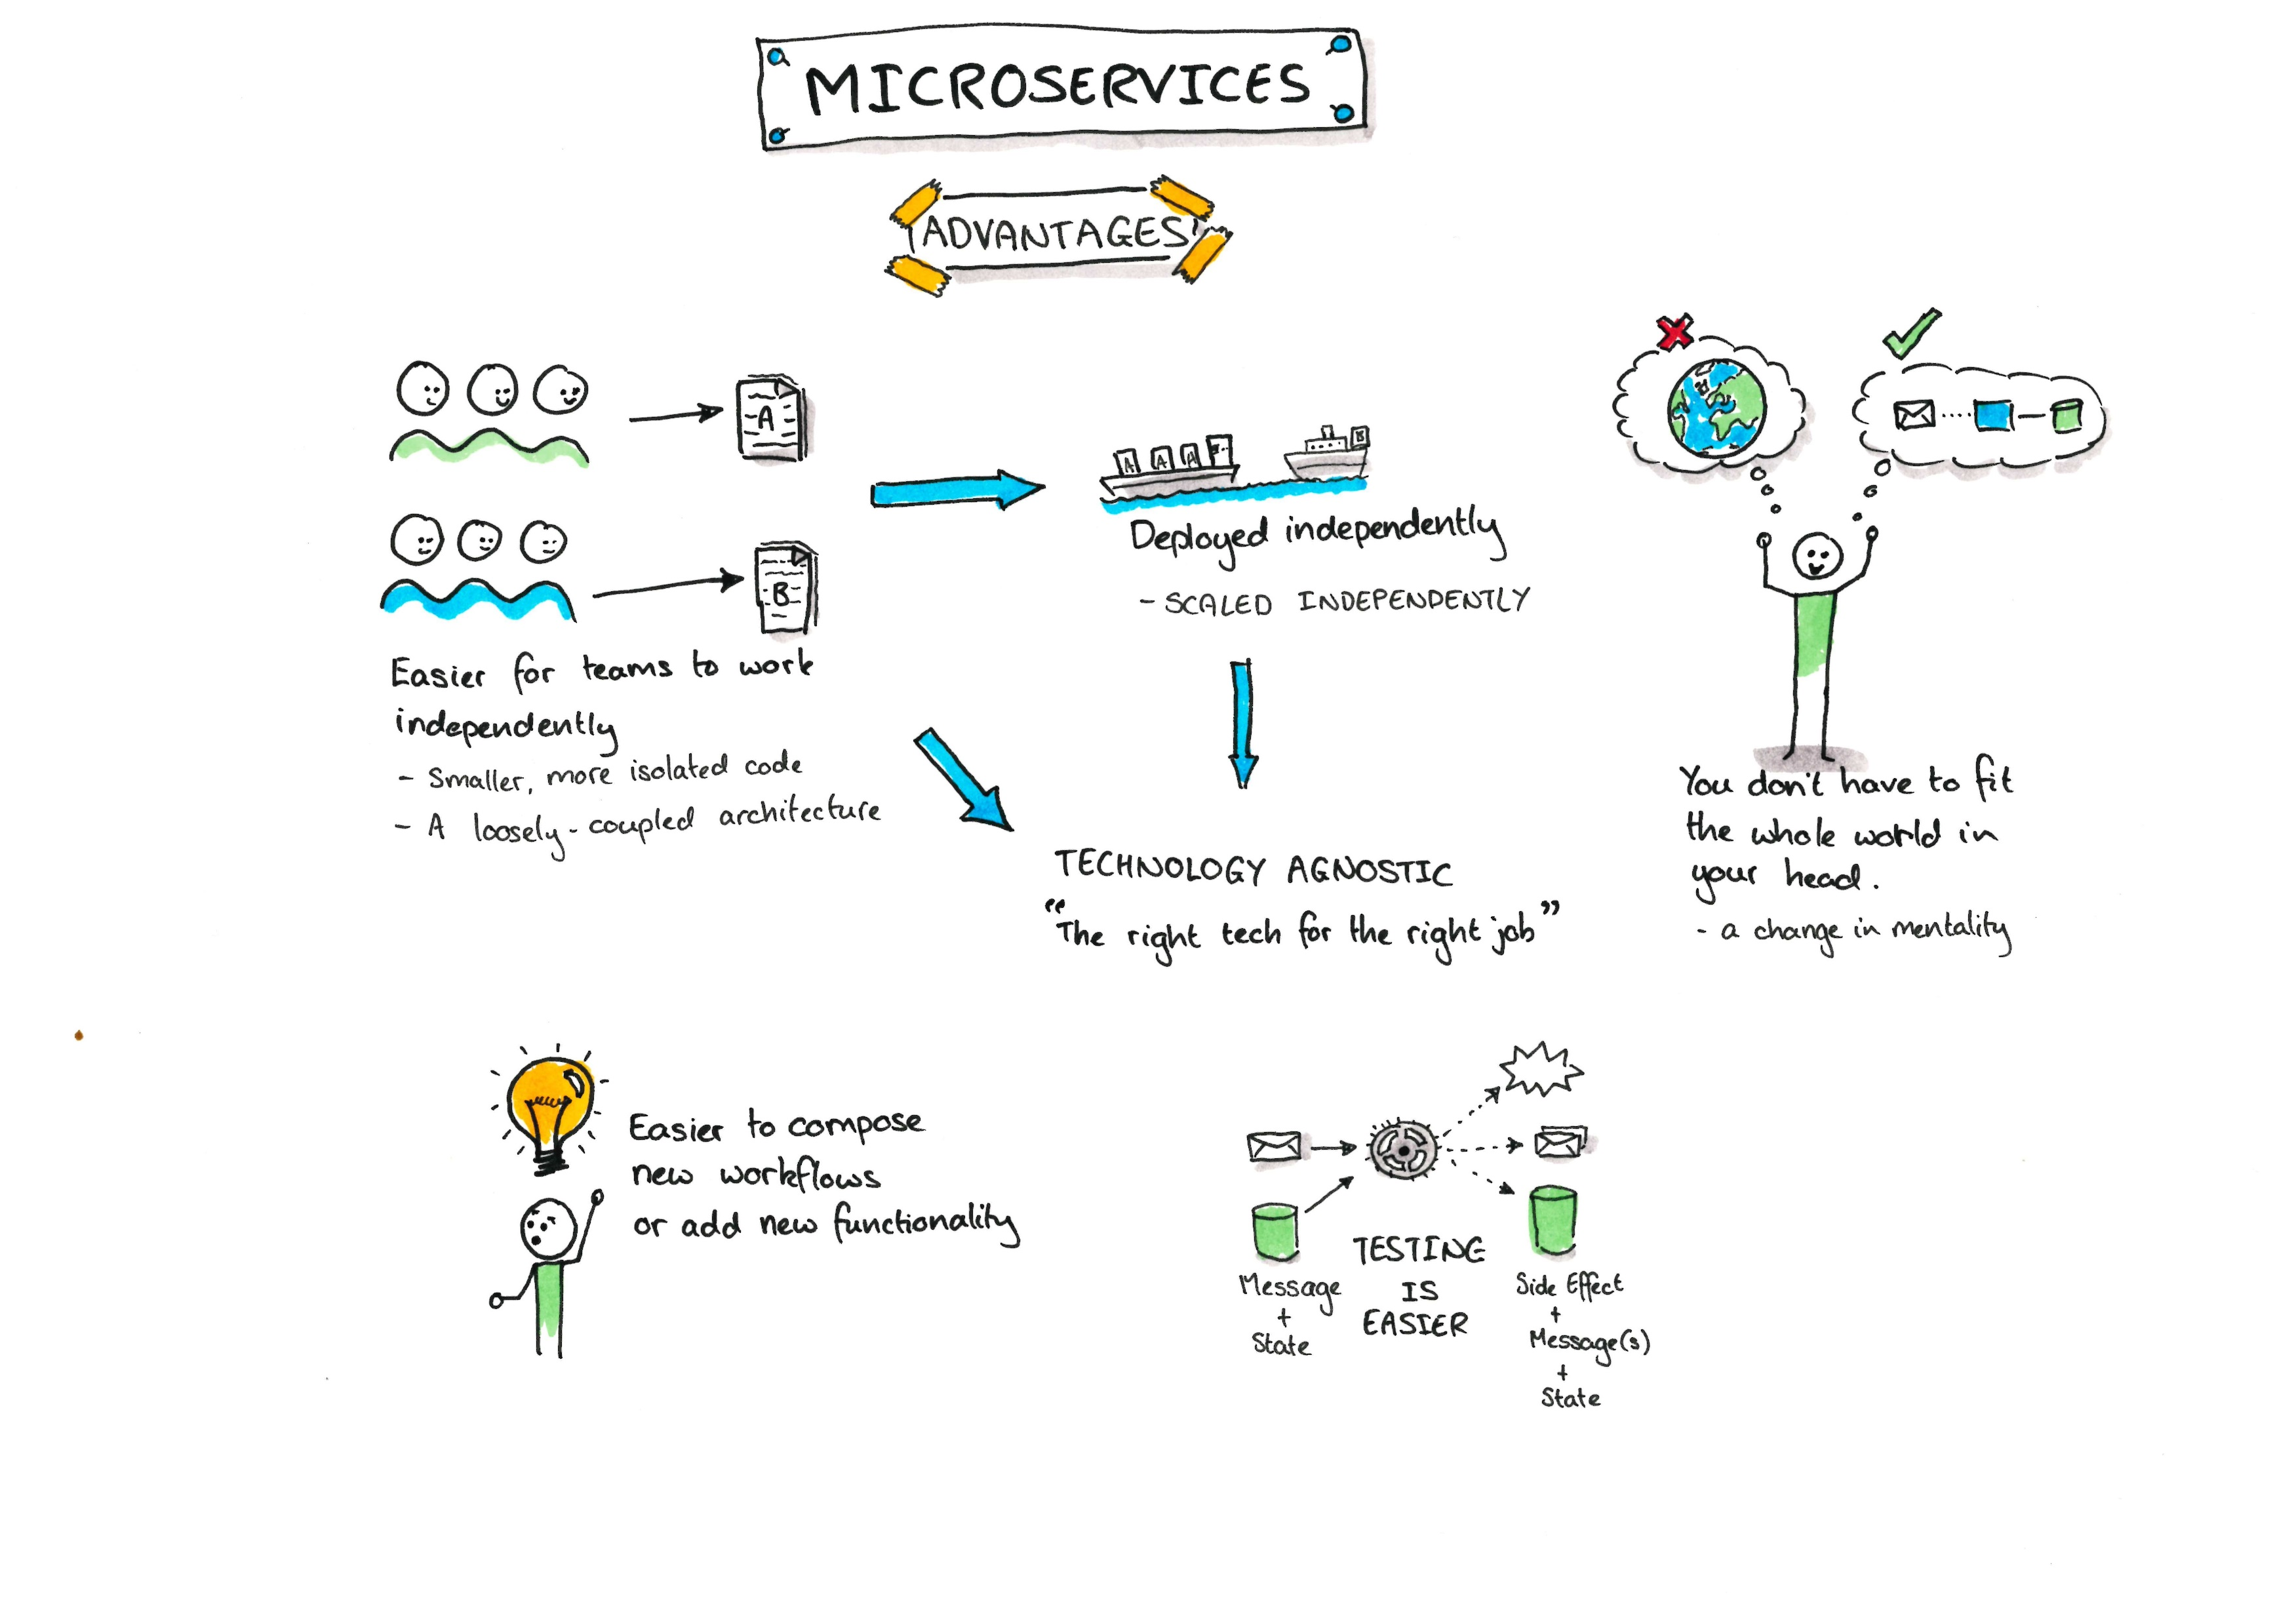 MICROSERVICES
ADVANTAGES
A
B
Easier for teams to work
independently
- Smaller, more isolated code
- A loosely-coupled architecture
A A A
B
Deployed independently
- SCALED INDEPENDENTLY
TECHNOLOGY AGNOSTIC
"The right tech for the right job"
You don't have to fit
the whole world in
your head.
- a change in mentality
Easier to compose
new workflows
or add new functionality
TESTING
IS
EASIER
Message
+
State
Side Effect
+
Message(s)
+
State